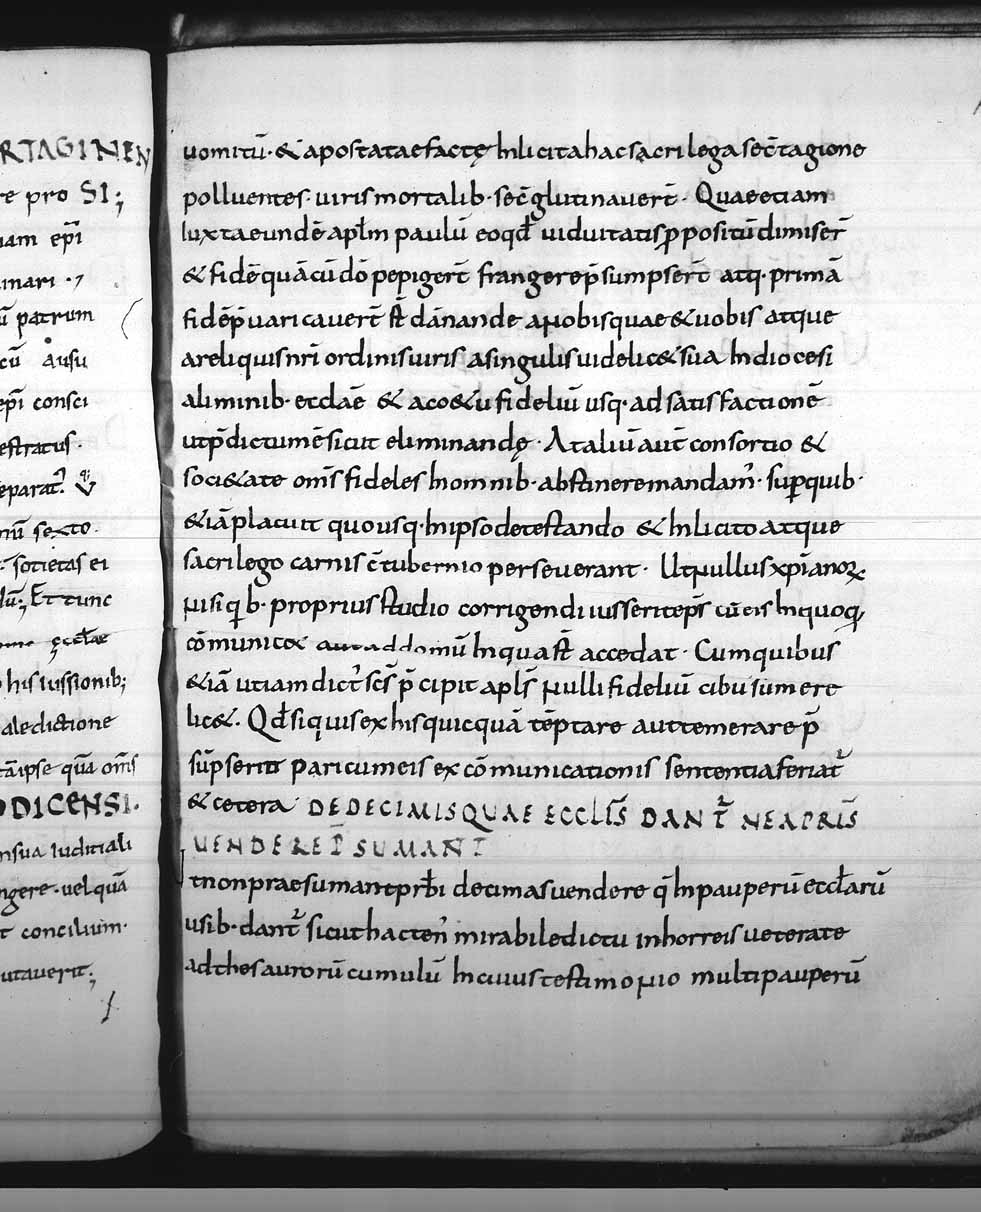 RTAGINEN
re pro SI;
uam ep̄i
mari
ū patrum
cū ausu
ep̄i consci
estratus
eparat̄
mū sexto
societas ei
lū; Et tunc
eccłae
his iussionib;
aledictione
tāipse quā om̄s
ODICENSI.
nsua iuditiali
ngere. uel quā
t concilium.
utauerit;
uomitū. & apostatae factę Inlicita hac sacrilega sec̄tagione
polluentes. uiris mortalib. sec̄glutinauer̄t. Quae etiam
Iuxta eundē ap̄lm paulū eo qđ uiduitatis p̄positū dimiser̄
& fidē quā cū dō pepiger̄t frangere p̄sumpser̄t atq. primā
fidē p̄uaricauer̄t s̄t dānande a nobis quae & uobis atque
a reliquis nr̄i ordinis uiris a singulis uidelic& sua In diocesi
aliminib. ecclāe & a co&u fideliū usq. ad satisfactionē
ut p̄dictum ē sicut eliminandę. A taliū aut̄ consortio &
soci&ate om̄s fideles In omnib. abstinere mandam̄. sup̄ quib.
&iā placuit quousq. In ipso detestando & Inlicito atque
sacrilego carnis c̄tubernio perseuerant. Ut nullus xp̄ianoꝝ
nisi q̄b. proprius studio corrigendi iusserit ep̄s cū eis In quoq,
cōmunic& aut ad domū In qua s̄t accedat. Cum quibus
&iā ut iam dict̄ sc̄s p̄cipit ap̄ls nulli fideliū cibū sumere
lic&. Qđ si quis ex his quicquā tēptare aut temerare p̄
sūpserit pari cum eis excōmunicationis sententia feriat̄
& cetera DE DECIMIS QUAE ECCLIS̄ DANT̄ NE A PR̄IS
UENDERE P̄SUMANT
t non praesumant prb̄i decimas uendere q̄ In pauperū eccłarū
usib. dant̄ sicut hacten̄ mirabile dictu in horreis ueterate
ad thesaurorū cumulū In cuius testimonio multi pauperū